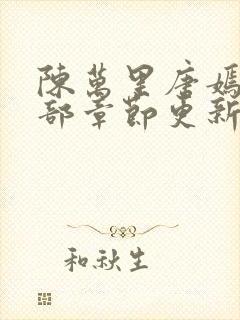 陳萬里唐嫣
部章節更新
和秋生